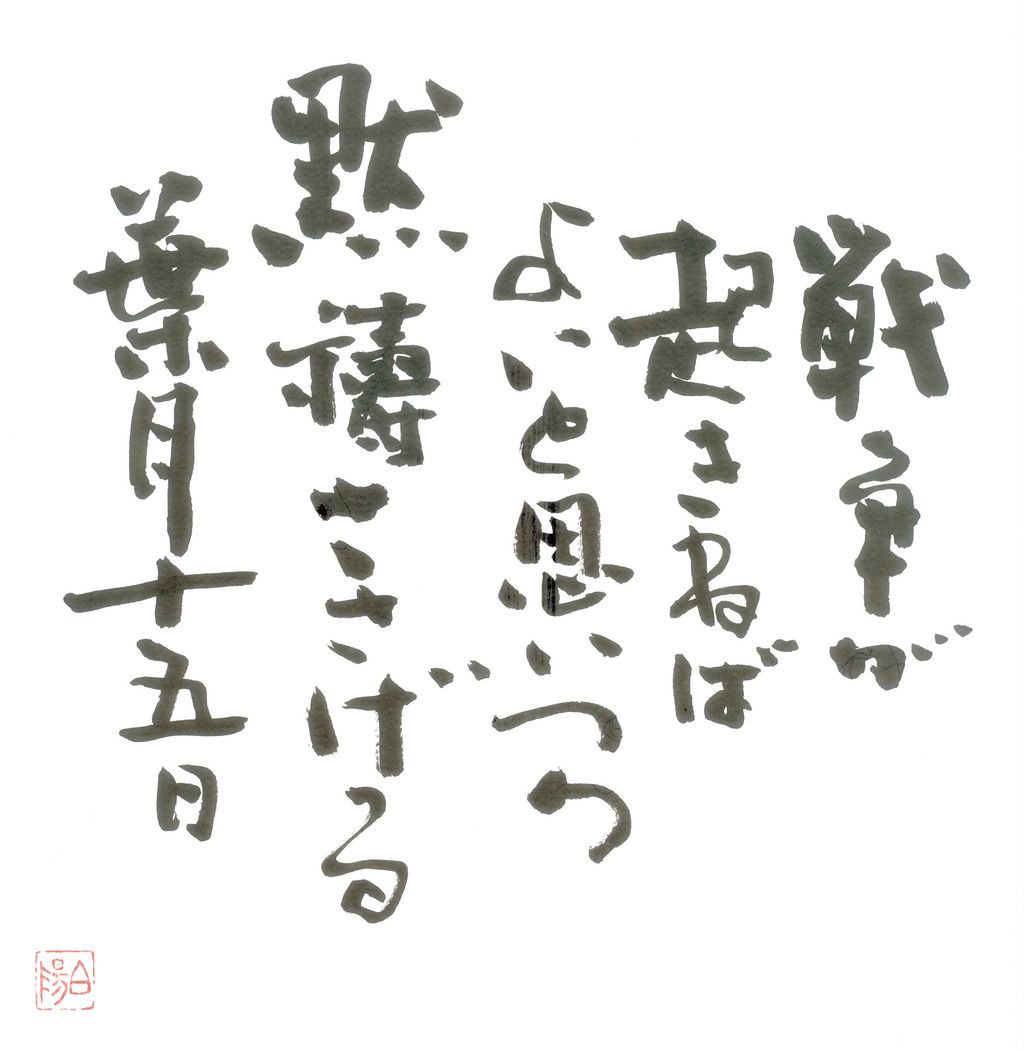 戦争が
起きねば
よいと思いつつ
黙禱ささげる
葉月十五日
白陽